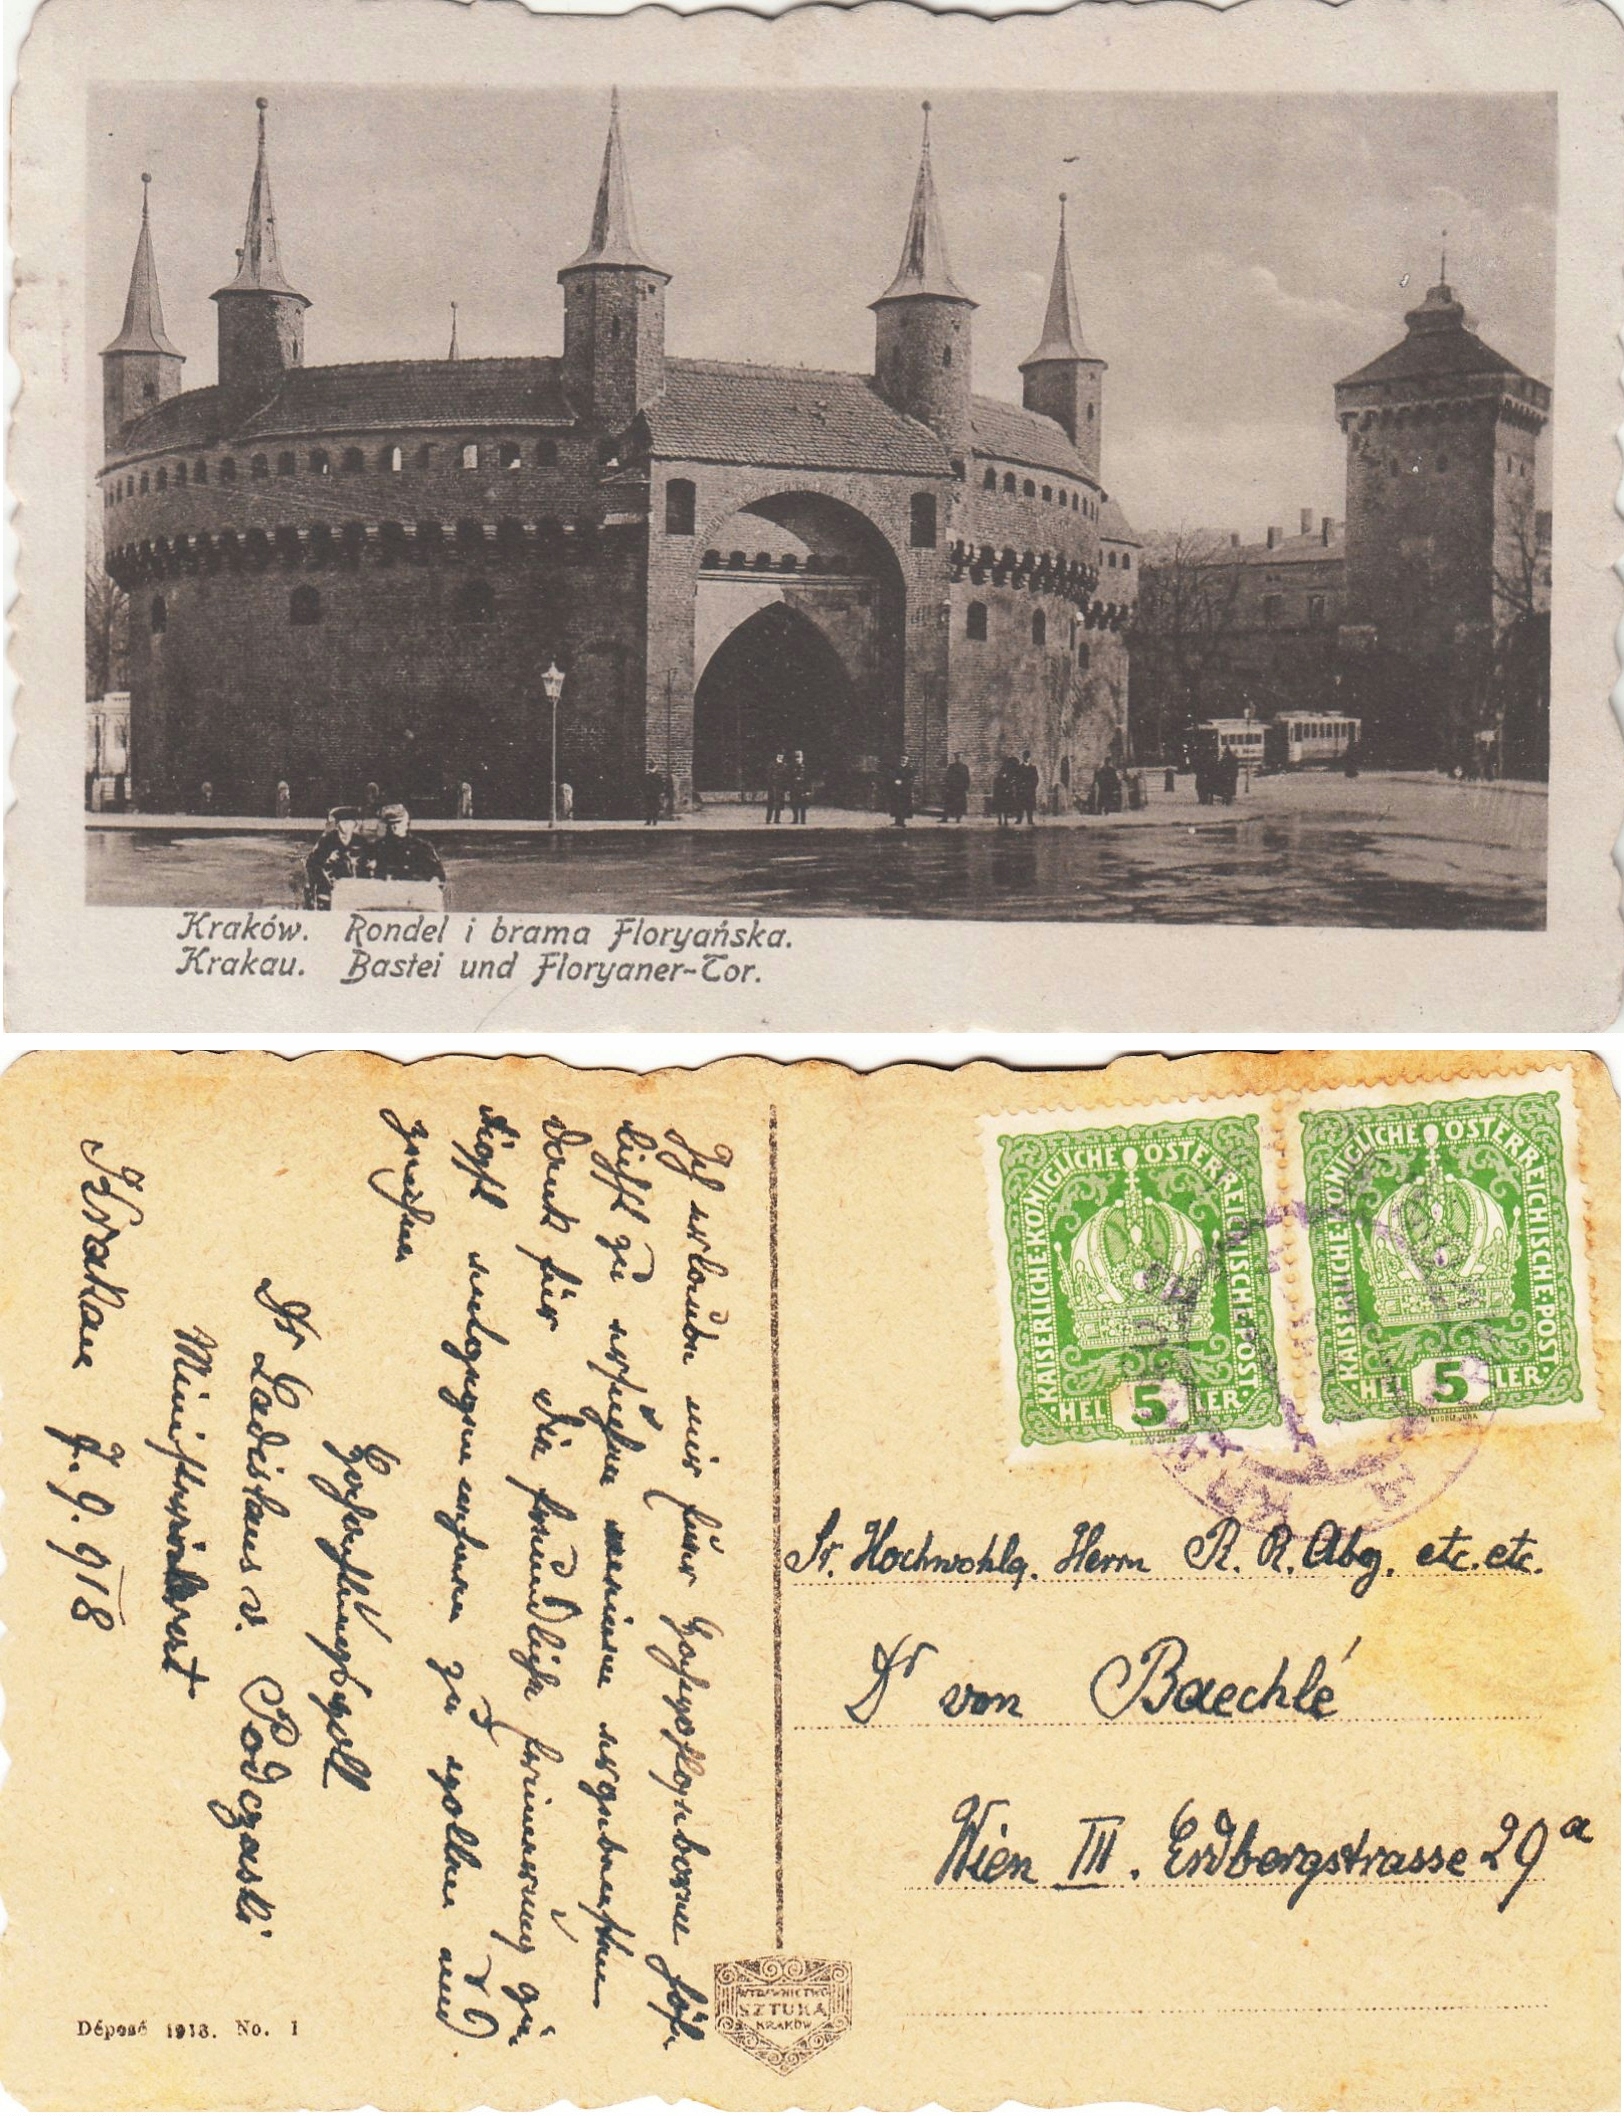 Kraków. Rondel i brama Floryańska.
Krakau. Bastei und Floryaner-Tor.
Ich erlaube mir Euer Hochwohlgeboren höf-
lichst zu ersuchen meinen ergebensten
Dank für die freundliche Erinnerung gü-
tigst entgegennehmen zu wollen und
zeichne
Hochachtungsvoll
Dr Ladislaus v. Podczaski
Ministerialrat
Krakau 7.9.918
Déposé 1918. No. 1
WYDAWNICTWO
SZTUKA
KRAKÓW
KAISERLICHE·KÖNIGLICHE ÖSTERREICHISCHE·POST·
·HEL 5 LER·
RUDOLF JUNK
KAISERLICHE·KÖNIGLICHE ÖSTERREICHISCHE·POST·
·HEL 5 LER·
RUDOLF JUNK
Sr. Hochwohlg. Herrn R. R. Abg. etc. etc.
Dr von Baechlé
Wien III. Erdbergstrasse 29a